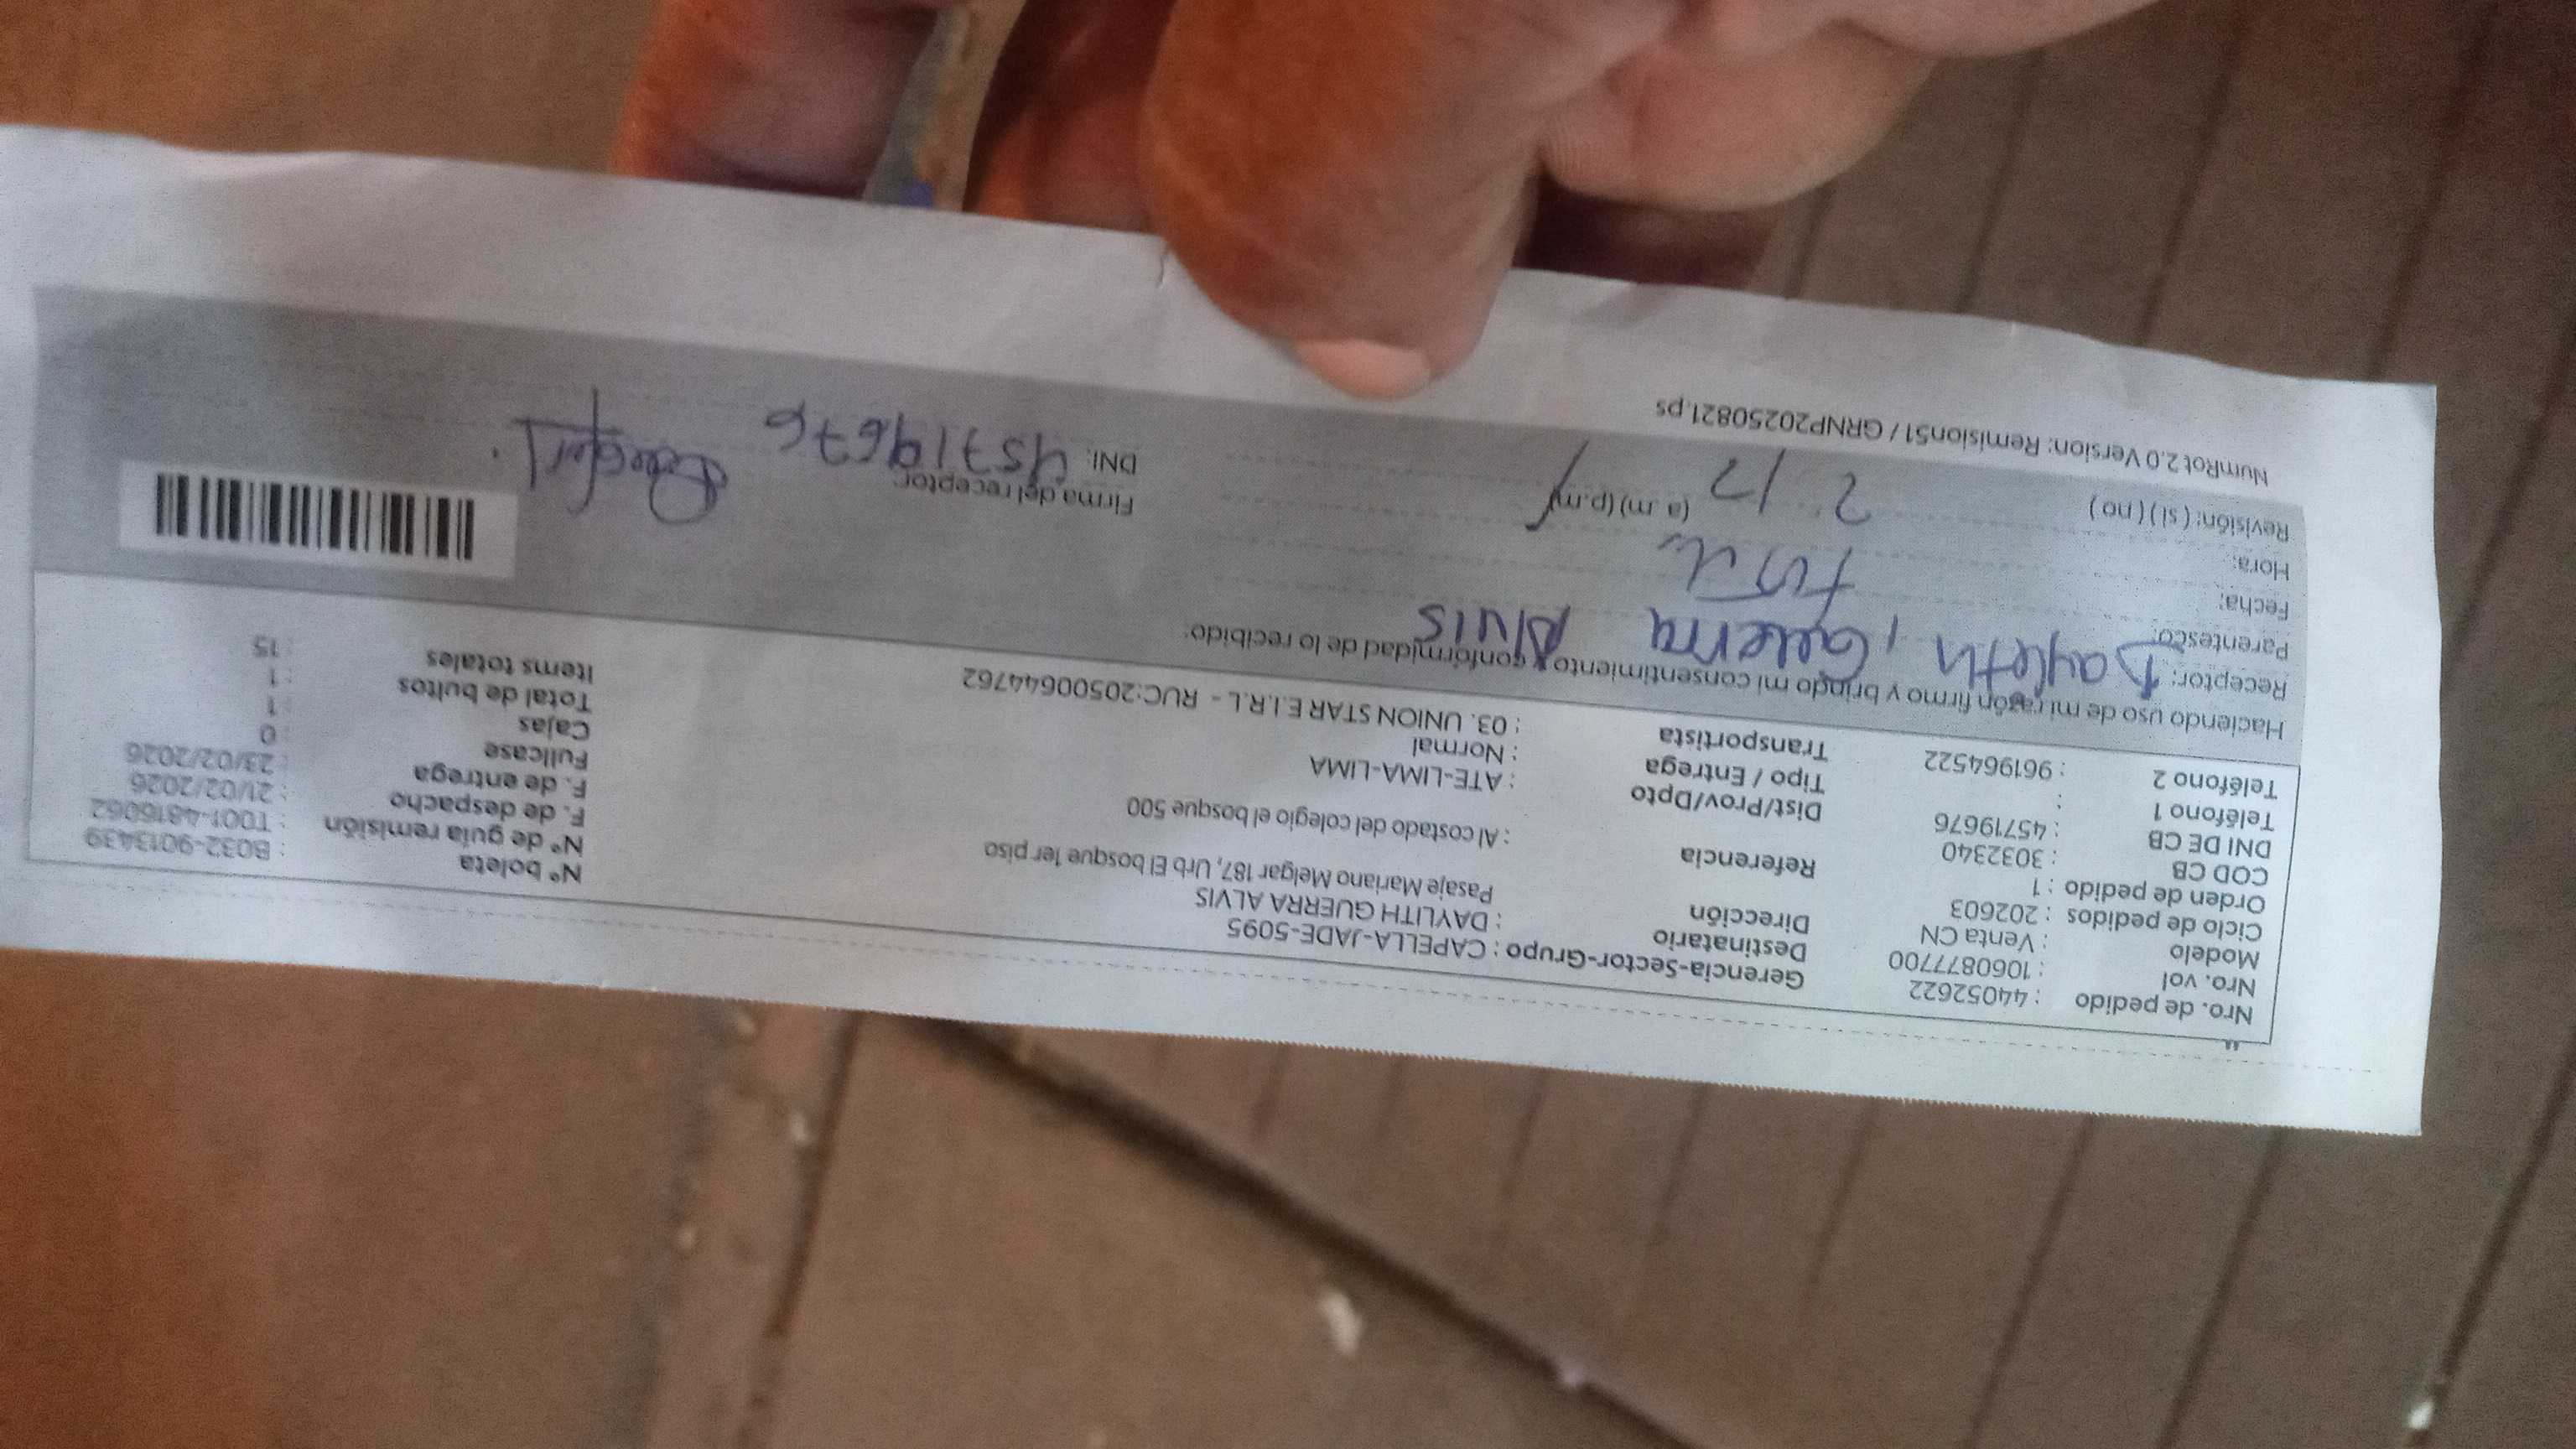 Nro. de pedido : 44052622
Nro. vol : 1060877700
Modelo : Venta CN
Ciclo de pedidos : 202603
Orden de pedido : 1
COD CB : 3032340
DNI DE CB : 45719676
Teléfono 1 :
Teléfono 2 : 961964522
Gerencia-Sector-Grupo : CAPELLA-JADE-5095
Destinatario : DAYLITH GUERRA ALVIS
Dirección Pasaje Mariano Melgar 187, Urb El bosque 1er piso
Referencia : Al costado del colegio el bosque 500
Dist/Prov/Dpto : ATE-LIMA-LIMA
Tipo / Entrega : Normal
Transportista : 03. UNION STAR E.I.R.L - RUC:20500644762
N° boleta : B032-9013439
N° de guía remisión : T001-4816062
F. de despacho : 21/02/2026
F. de entrega : 23/02/2026
Fullcase : 0
Cajas : 1
Total de bultos : 1
Items totales : 15
Haciendo uso de mi razón firmo y brindo mi consentimiento y conformidad de lo recibido:
Receptor: Guerra Alvis
Parentesco:
Fecha:
Hora: 2:17 (a .m) (p.m)
Revisión: ( si ) ( no )
Firma del receptor:
DNI: 45719676
NumRot 2.0 Version: Remision51 / GRNP20250821.ps